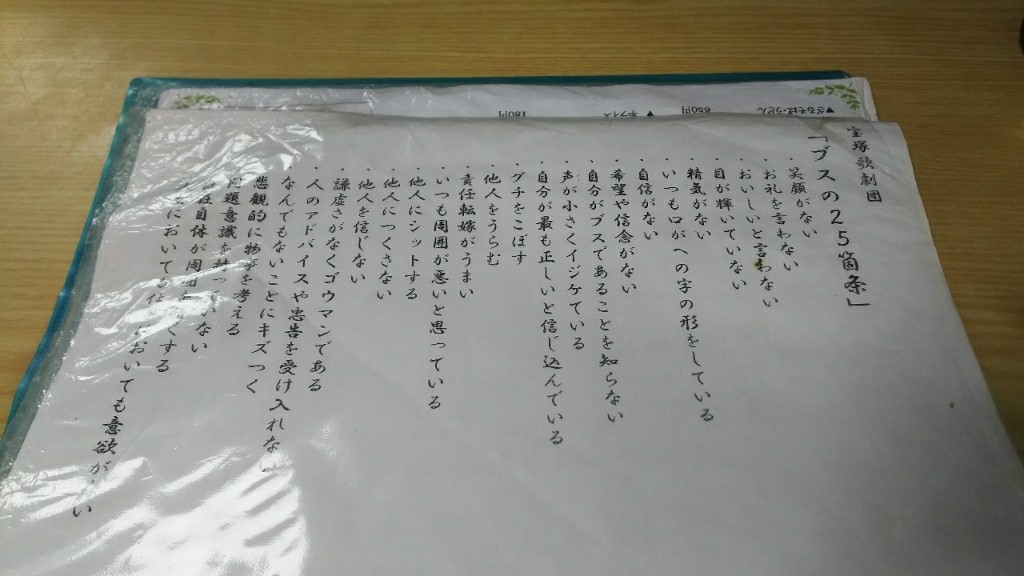 ▼ざるそば・うどん 650円
▼半ライス 180円
宝塚歌劇団
「ブスの25箇条」
・笑顔がない
・お礼を言わない
・おいしいと言わない
・目が輝いていない
・精気がない
・いつも口がへの字の形をしている
・自信がない
・希望や信念がない
・自分がブスであることを知らない
・声が小さくイジケている
・自分が最も正しいと信じ込んでいる
・グチをこぼす
・他人をうらむ
・責任転嫁がうまい
・いつも周囲が悪いと思っている
・他人にシットする
・他人につくさない
・他人を信じない
・謙虚さがなくゴウマンである
・人のアドバイスや忠告を受け入れな
・なんでもないことにキズつく
悲観的に物事を考える
問題意識を持っていない
在自体が周囲 くする
においても仕 においても意欲が い